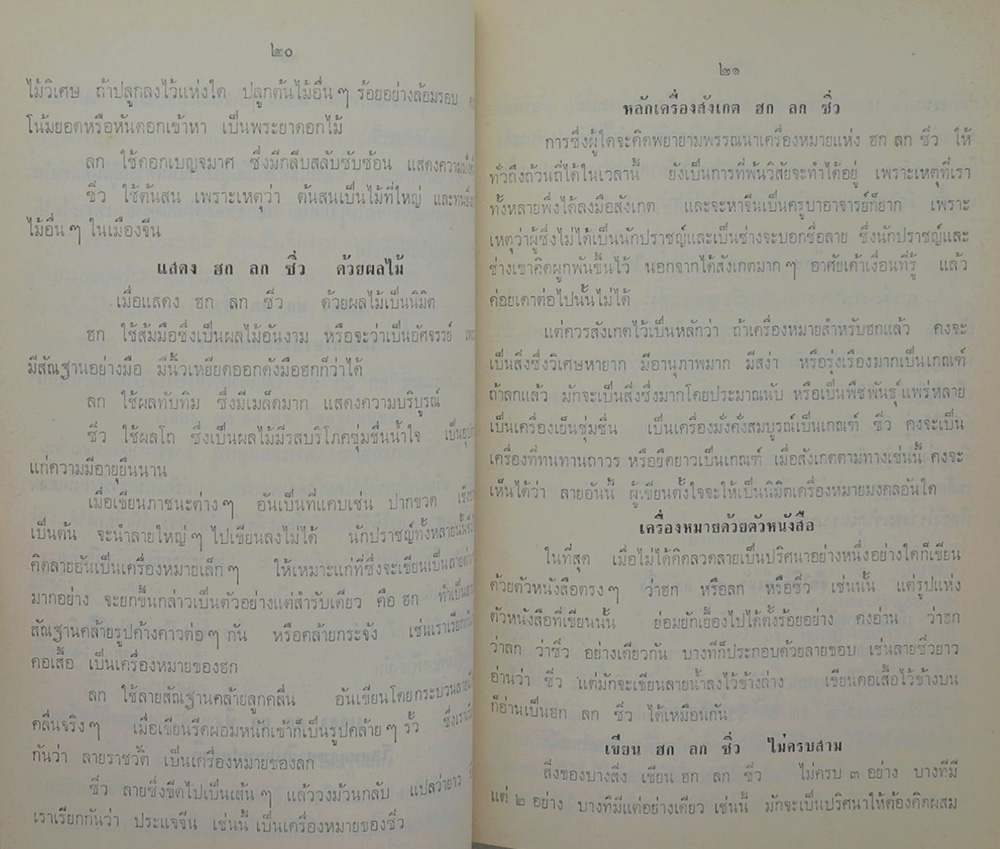 ๒๐
ไม้วิเศษ ถ้าปลูกลงไว้แห่งใด ปลูกต้นไม้อื่น ๆ ร้อยอย่างล้อมรอบ
โน้มยอดหรือหันดอกเข้าหา เป็นพระยาดอกไม้
ลก ใช้ดอกเบญจมาศ ซึ่งมีกลีบสลับซับซ้อน แสดงความ
ซิ่ว ใช้ต้นสน เพราะเหตุว่า ต้นสนเป็นไม้ที่ใหญ่ และทน
ไม้อื่น ๆ ในเมืองจีน
แสดง ฮก ลก ซิ่ว ด้วยผลไม้
เมื่อแสดง ฮก ลก ซิ่ว ด้วยผลไม้เป็นนิมิต
ฮก ใช้ส้มมือซึ่งเป็นผลไม้อันงาม หรือจะว่าเป็นอัศจรรย์
มีสัณฐานอย่างมือ มีนิ้วเหยียดออกดังมือฮกก็ว่าได้
ลก ใช้ผลทับทิม ซึ่งมีเมล็ดมาก แสดงความบริบูรณ์
ซิ่ว ใช้ผลโถ ซึ่งเป็นผลไม้มีรสบริโภคชุ่มชื่นน้ำใจ
แก่ความมีอายุยืนนาน
เมื่อเขียนภาชนะต่าง ๆ อันเป็นที่แคบเช่น ปากขวด
เป็นต้น จะนำลายใหญ่ ๆ ไปเขียนลงไม่ได้ นักปราชญ์ทั้งหลาย
คิดลายอันเป็นเครื่องหมายเล็ก ๆ ให้เหมาะแก่ที่ซึ่งจะเขียนเป็นลาย
มากอย่าง จะยกขึ้นกล่าวเป็นตัวอย่างแต่สำรับเดียว คือ ฮก ทำเป็น
สัณฐานคล้ายรูปค้างคาวต่อ ๆ กัน หรือคล้ายกระจัง เช่นเราเรียก
คอเสื้อ เป็นเครื่องหมายของฮก
ลก ใช้ลายสัณฐานคล้ายลูกคลื่น อันเขียนโดยกระบวน
คลื่นจริง ๆ เมื่อเขียนรีดผอมหนักเข้าก็เป็นรูปคล้าย ๆ รั้ว ซึ่งเรา
กันว่า ลายราชวัติ เป็นเครื่องหมายของลก
ซิ่ว ลายซึ่งขีดไปเป็นเส้น ๆ แล้ววงม้วนกลับ แปลว่ายาว
เราเรียกกันว่า ประแจจีน เช่นนี้ เป็นเครื่องหมายของซิ่ว
๒๑
หลักเครื่องสังเกต ฮก ลก ซิ่ว
การซึ่งผู้ใดจะคิดพยายามพรรณนาเครื่องหมายแห่ง ฮก ลก ซิ่ว ให้
ทั่วถึงถ้วนถี่ได้ในเวลานี้ ยังเป็นการที่พ้นวิสัยจะทำได้อยู่ เพราะเหตุที่เรา
ทั้งหลายพึ่งได้ลงมือสังเกต และจะหาจีนเป็นครูบาอาจารย์ก็ยาก เพราะ
เหตุว่าผู้ซึ่งไม่ได้เป็นนักปราชญ์และเป็นช่างจะบอกชื่อลาย ซึ่งนักปราชญ์และ
ช่างเขาคิดผูกพันขึ้นไว้ นอกจากได้สังเกตมาก ๆ อาศัยเค้าเงื่อนที่รู้ แล้ว
ค่อยเดาต่อไปนั้นไม่ได้
แต่ควรสังเกตไว้เป็นหลักว่า ถ้าเครื่องหมายสำหรับฮกแล้ว คงจะ
เป็นสิ่งซึ่งวิเศษหายาก มีอานุภาพมาก มีสง่า หรือรุ่งเรืองมากเป็นเกณฑ์
ถ้าลกแล้ว มักจะเป็นสิ่งซึ่งมากโดยประมาณนับ หรือเป็นพืชพันธุ์แพร่หลาย
เป็นเครื่องเย็นชุ่มชื่น เป็นเครื่องมั่งคั่งสมบูรณ์เป็นเกณฑ์ ซิ่ว คงจะเป็น
เครื่องที่ทนทานถาวร หรือยืดยาวเป็นเกณฑ์ เมื่อสังเกตตามทางเช่นนี้ คงจะ
เห็นได้ว่า ลายอันนี้ ผู้เขียนตั้งใจจะให้เป็นนิมิตเครื่องหมายมงคลอันใด
เครื่องหมายด้วยตัวหนังสือ
ในที่สุด เมื่อไม่ได้คิดลวดลายเป็นปริศนาอย่างหนึ่งอย่างใดก็เขียน
ด้วยตัวหนังสือตรง ๆ ว่าฮก หรือลก หรือซิ่ว เช่นนั้น แต่รูปแห่ง
ตัวหนังสือที่เขียนนั้น ย่อมยักเยื้องไปได้ตั้งร้อยอย่าง คงอ่าน ว่าฮก
ว่าลก ว่าซิ่ว อย่างเดียวกัน บางทีก็ประกอบด้วยลายขอบ เช่นลายซิ่วยาว
อ่านว่า ซิ่ว แต่มักจะเขียนลายน้ำลงไว้ข้างล่าง เขียนคอเสื้อไว้ข้างบน
ก็อ่านเป็นฮก ลก ซิ่ว ได้เหมือนกัน
เขียน ฮก ลก ซิ่ว ไม่ครบสาม
สิ่งของบางสิ่ง เขียน ฮก ลก ซิ่ว ไม่ครบ ๓ อย่าง บางทีมี
แต่ ๒ อย่าง บางทีมีแต่อย่างเดียว เช่นนี้ มักจะเป็นปริศนาให้ต้องคิดผสม